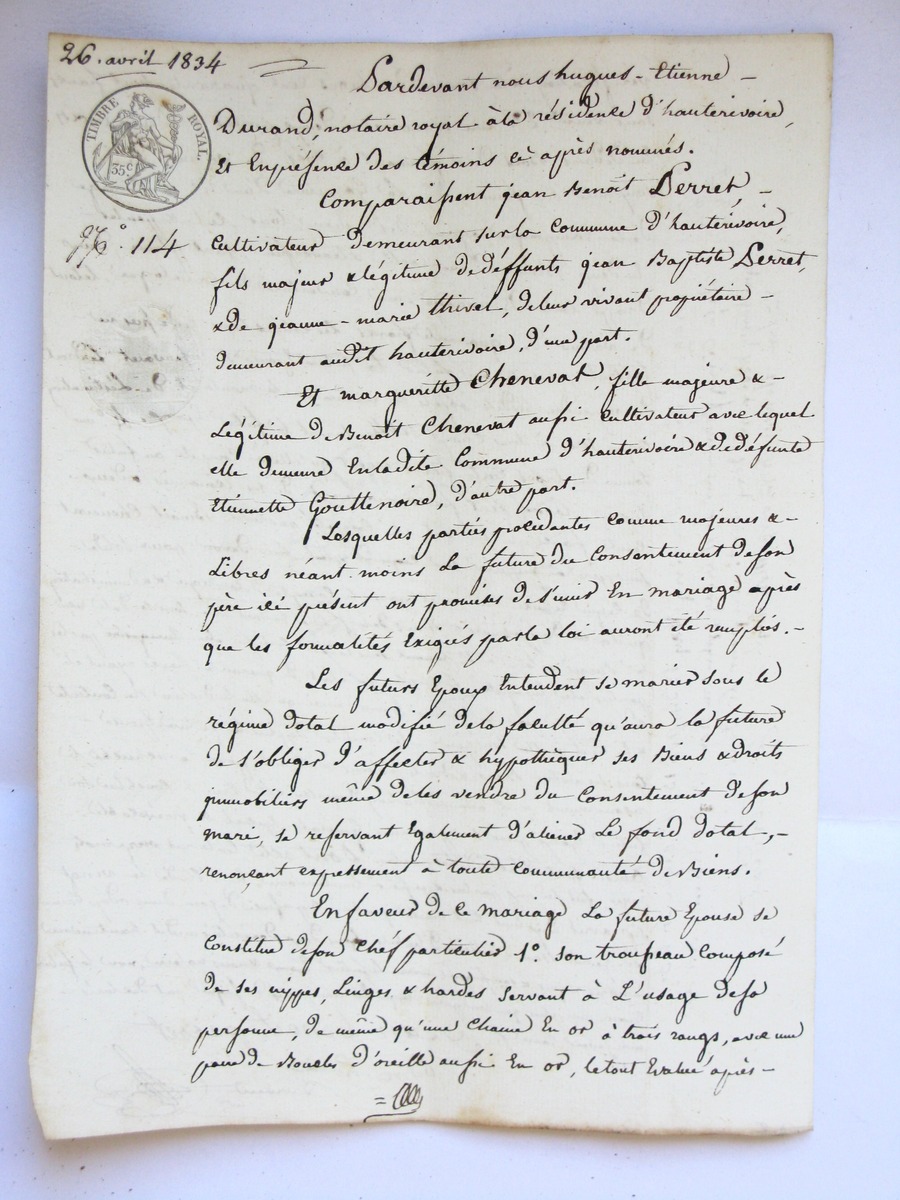 26. avril 1834
TIMBRE ROYAL.
35 c
N.° 114
Pardevant nous hugues - Etienne -
Durand, notaire royal à la résidence d'hauterivoire,
Et En présence des témoins cè après nommés.
Comparaissent jean Benoit Perret, -
Cultivateur demeurant sur la Commune d'hauterivoire,
fils majeur & légitime de déffunts jean Baptiste Perret,
& de jeanne - marie thivel, de leur vivant propiétaire -
demeurant audit hauterivoire, d'une part.
Et margueritte Chenevat, fille majeure & -
Légitime de Benoit Chenevat aussi Cultivateur avec lequel
elle demeure En ladite Commune d'hauterivoire & de défunte
Etiennette Gouttenoire, d'autre part.
Lesquelles parties procédantes comme majeures & -
Libres néant-moins La future du Consentement de son
père ici présent ont promises de s'unir En mariage après
que les formalités Exigiés par la loi auront été remplies. -
Les futurs Epoux Entendent se marier sous le
régime dotal modifié de la faculté qu'aura la future
de s'obliger d'affecter & hypothèquer ses Biens & droits
immobiliers même de les vendre du Consentement de son
mari, se reservant Egalement d'aliener Le fond dotal, -
renonçant expressement à toute communauté de Biens.
En faveur de ce mariage La future Epouse se
Constitue de son Chéf particulier 1°. son trousseau Composé
de ses nippes, Linges & hardes servant à L'usage de sa
personne, de même qu'une Chaine En or à trois rangs, avec une
paire de Boucles d'oreille aussi En or, le tout Evalué après -